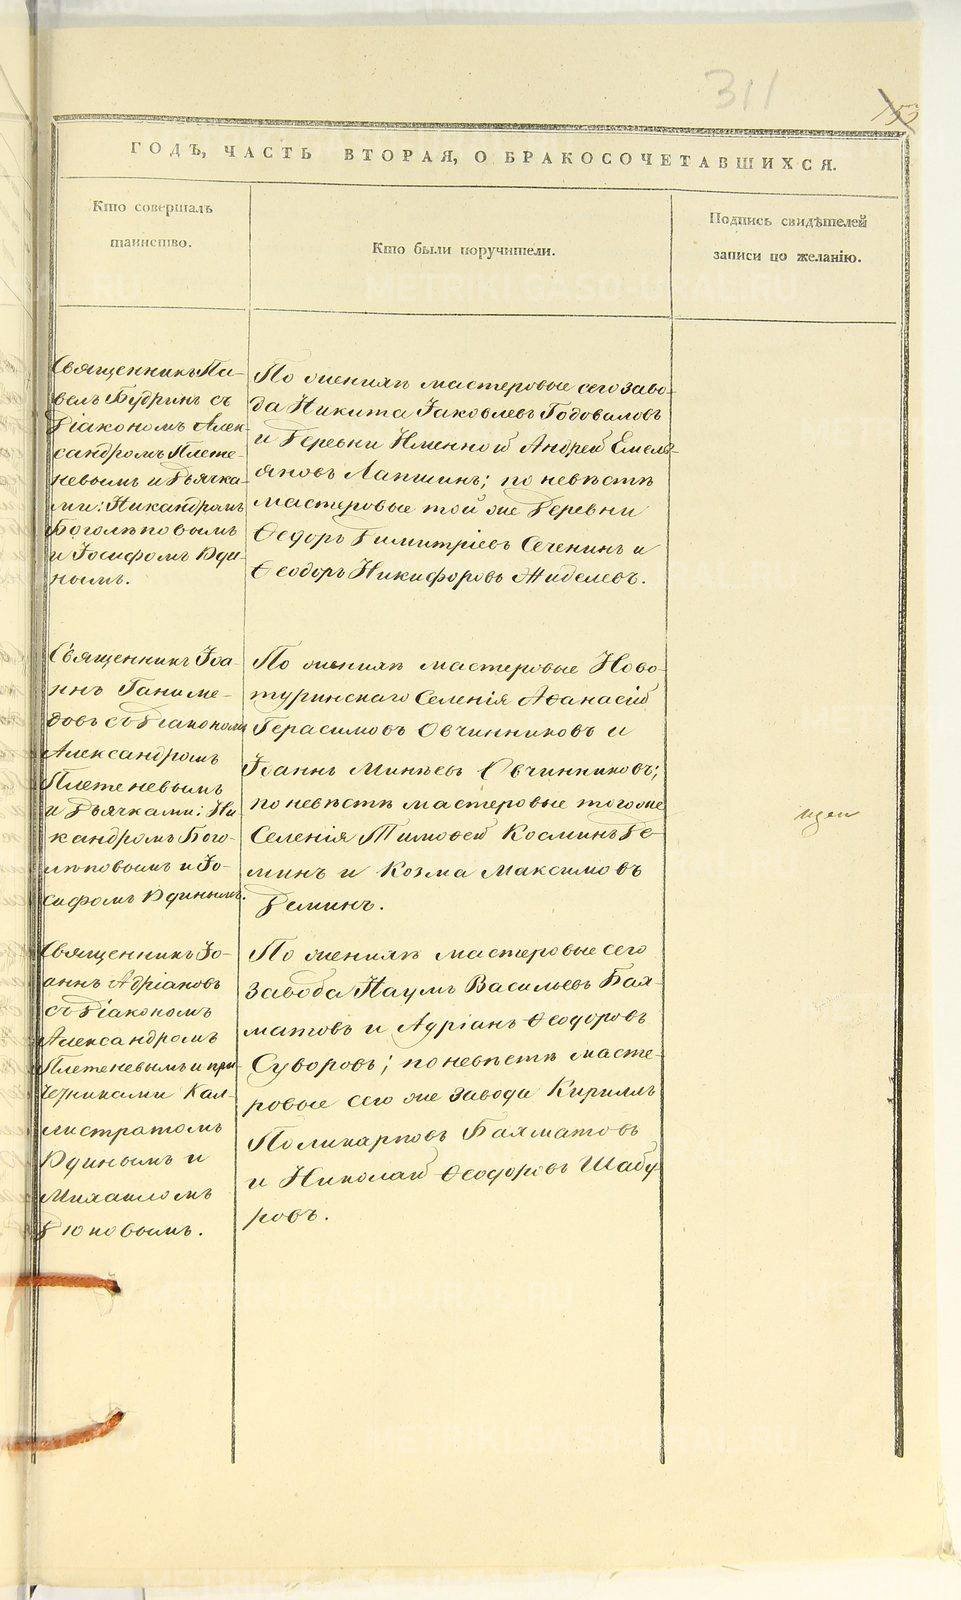 311
153
ГОДЪ, ЧАСТЬ ВТОРАЯ, О БРАКОСОЧЕТАВШИХСЯ.
Кто совершалъ
таинство.
Кто были поручители.
Подпись свидѣтелей
записи по желанію.
Священникъ Па-
велъ Будринъ съ
Діакономъ Алек-
сандромъ Плете-
невымъ и Дьячка-
ми: Никандромъ
Боголѣповымъ
и Іосифомъ Вди-
нымъ.
По женихѣ мастеровые сего заво-
да Никита Іаковлевъ Годоваловъ
и Деревни Именной Андрей Емель-
яновъ Лапшинъ; по невѣстѣ
мастеровые той же Деревни
Ѳедоръ Димитріевъ Сеченинъ и
Ѳеодоръ Никифоровъ Жиделевъ.
Священникъ Іоа-
ннъ Ганиме-
довъ съ Діакономъ
Александромъ
Плетеневымъ
и Дьячками: Ни-
кандромъ Бого-
лѣповымъ и Іо-
сифомъ Вдинымъ.
По женихѣ мастеровые Ново-
туринскаго Селенія Аѳанасій
Герасимовъ Овчинниковъ и
Іоаннъ Минѣевъ Овчинниковъ;
по невѣстѣ мастеровые того же
Селенія Тимоѳей Косминъ Де-
минъ и Козма Максимовъ
Деминъ.
Священникъ Іо-
аннъ Адріановъ
съ Діакономъ
Александромъ
Плетеневымъ и при-
четниками Кал-
листратомъ
Вдинымъ и
Михаиломъ
Дюковымъ.
По женихѣ мастеровые сего
завода Наумъ Васильевъ Бах-
матовъ и Адріанъ Ѳеодоровъ
Суворовъ; по невѣстѣ масте-
ровые сего же завода Кириллъ
Поликарповъ Бахматовъ
и Николай Ѳеодоровъ Шабу-
ровъ.
METRIKI.GASO-URAL.RU